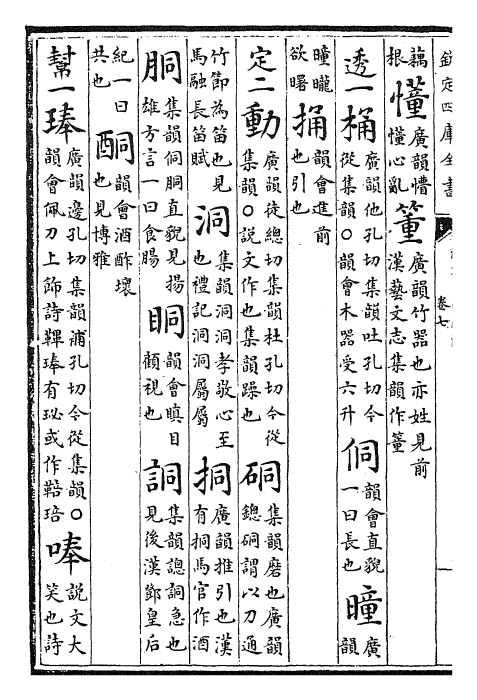 欽定四庫全書
卷七
藕
根
懂
廣韻懵
懂心亂
箽
廣韻竹器也亦姓見前
漢藝文志集韻作董
透一桶
廣韻他孔切集韻吐孔切今
從集韻○韻會木器受六升
侗
韻會直貌
一曰長也
曈
廣
韻
曈曨
欲曙
捅
韻會進前
也引也
定二動
廣韻徒總切集韻杜孔切今從
集韻○說文作也集韻躁也
硐
集韻磨也廣韻
鏓硐謂以刀通
竹節為笛也見
馬融長笛賦
洞
集韻洞洞孝敬心至
也禮記洞洞屬屬
挏
廣韻推引也漢
有挏馬官作酒
胴
集韻侗胴直貌見揚
雄方言一曰食腸
眮
韻會瞋目
顧視也
詷
集韻謥詷急也
見後漢鄧皇后
紀一曰
共也
酮
韻會酒酢壞
也見博雅
幫一琫
廣韻邊孔切集韻浦孔切今從集韻○
韻會佩刀上飾詩鞞琫有珌或作鞛琣
唪
說文大
笑也詩